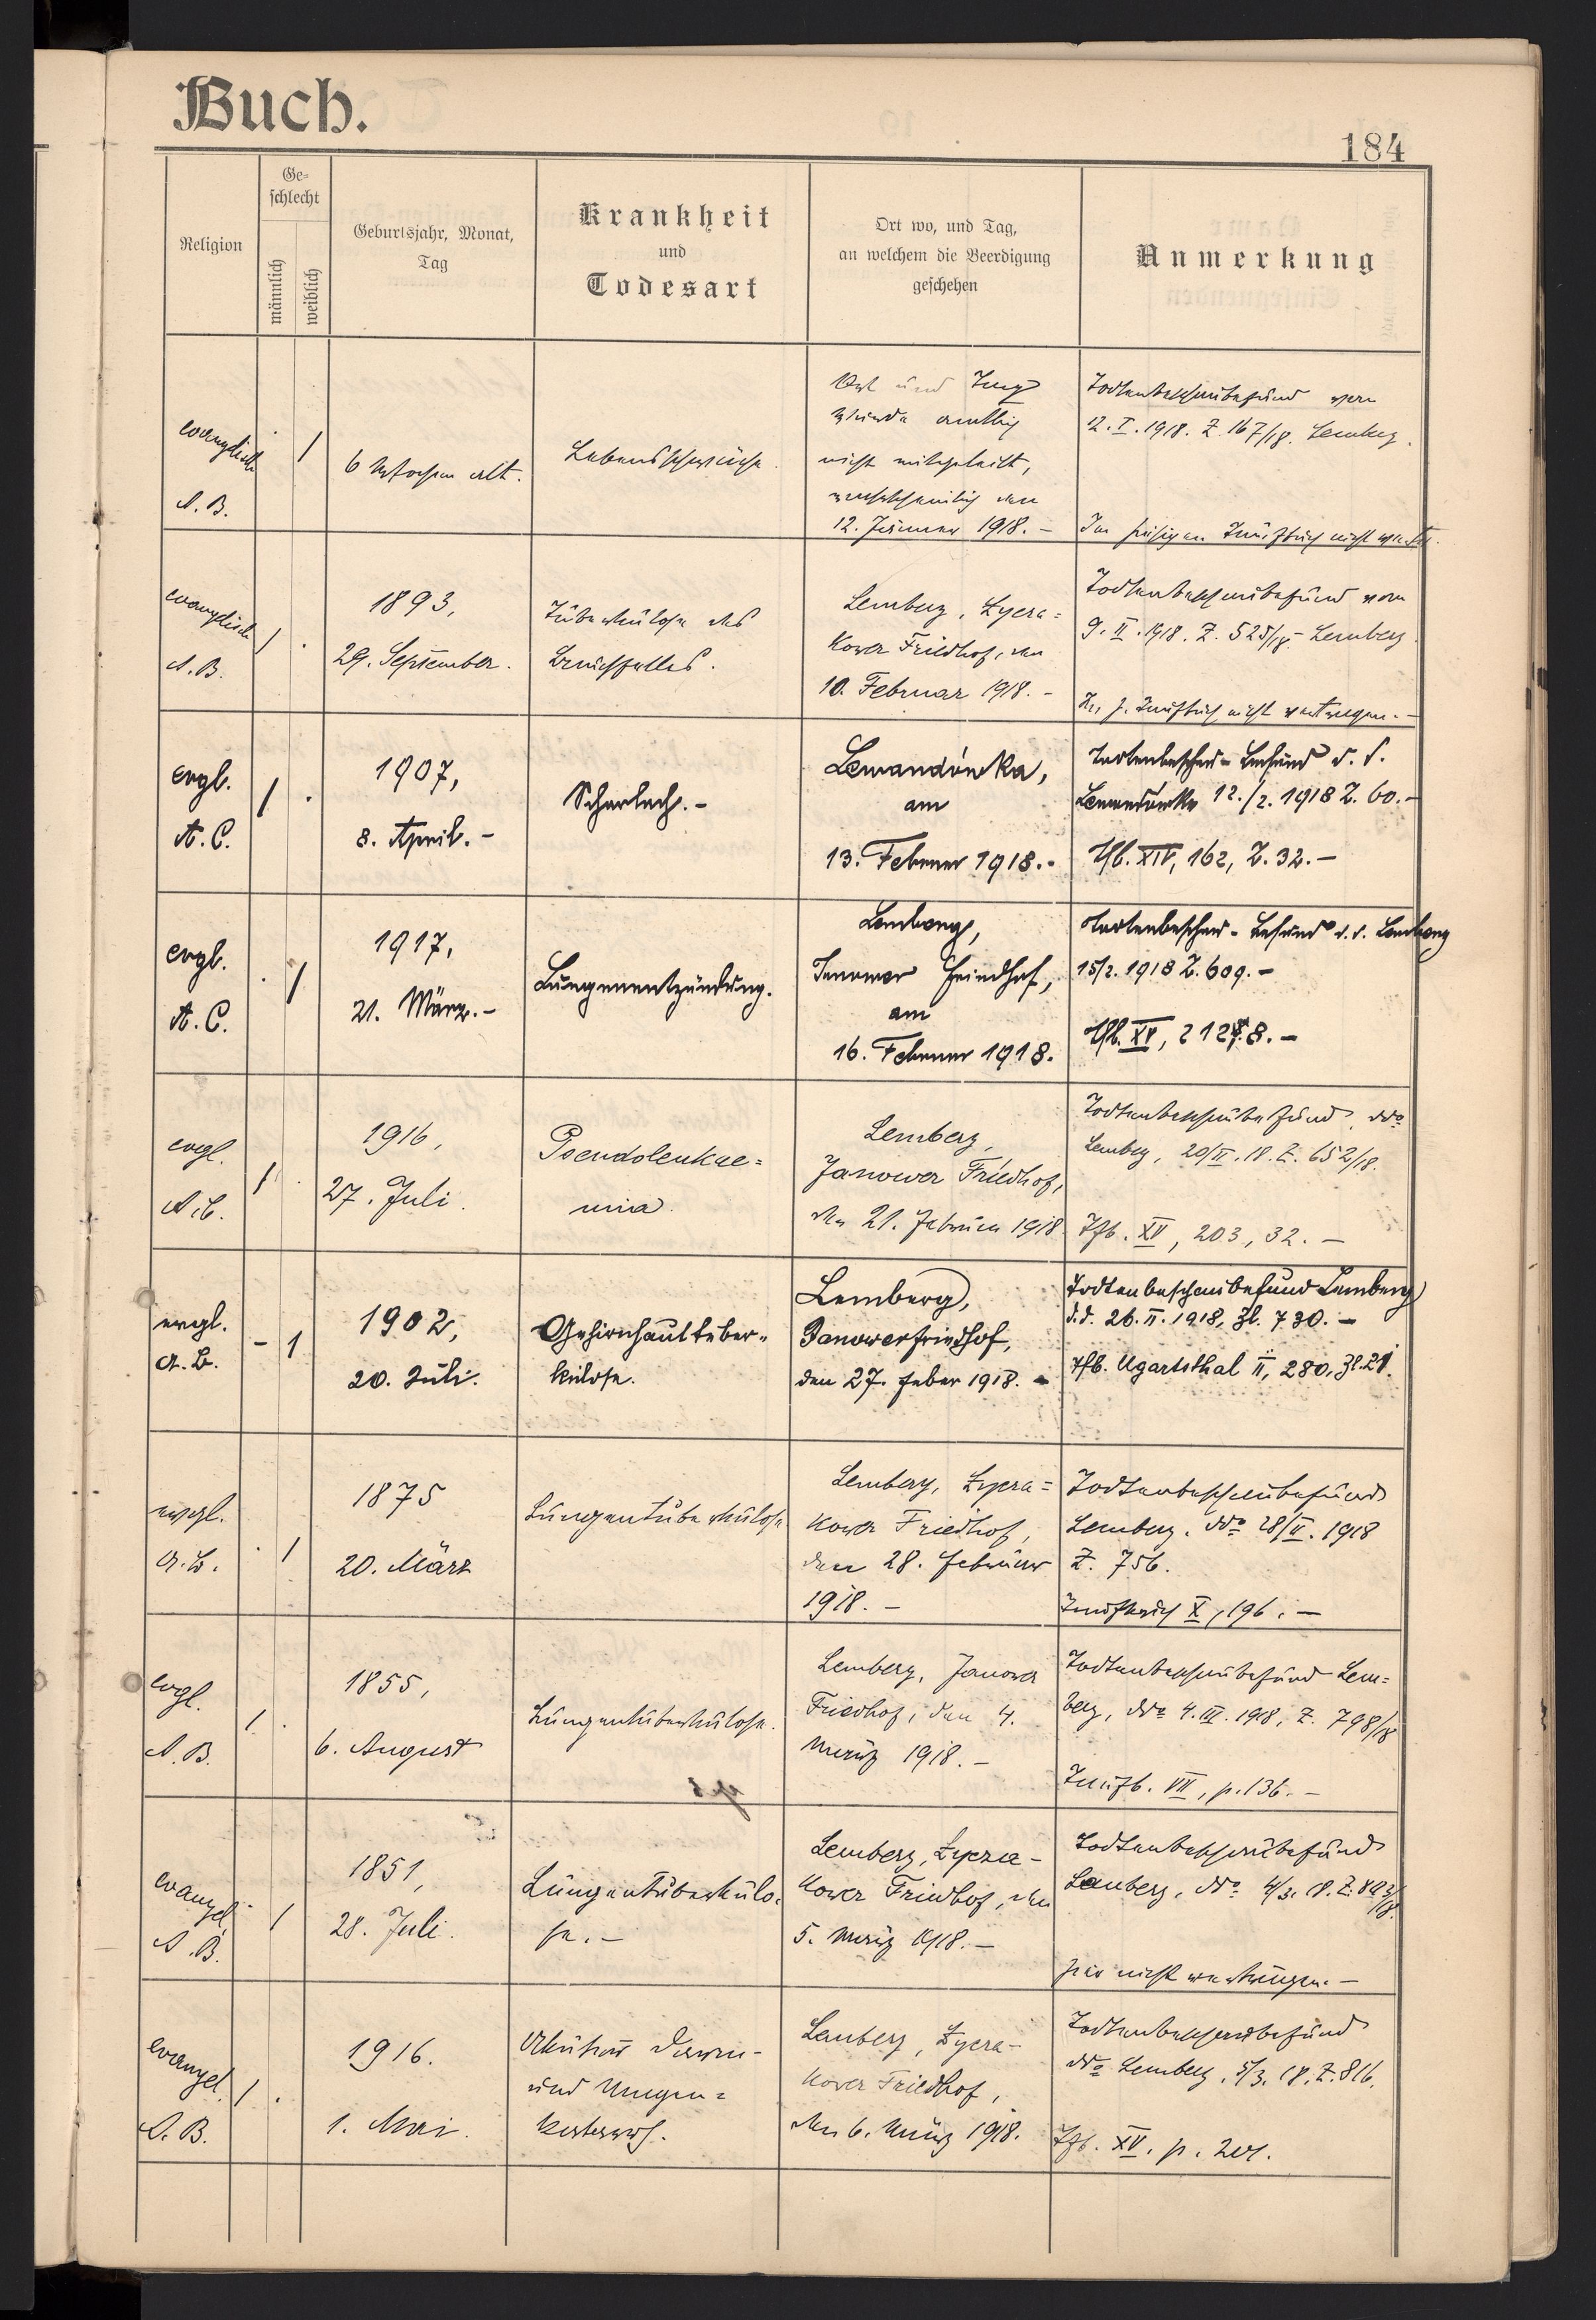 Buch.
184
Religion
Ge=
schlecht
männlich
weiblich
Geburtsjahr, Monat,
Tag
Krankheit
und
Todesart
Ort wo, und Tag,
an welchem die Beerdigung
geschehen
Anmerkung
evangelisch
A. B.
/
6 Wochen alt.
Lebensschwäche.
Ort und Tag
wurde amtlich
nicht mitgeteilt,
wahrscheinlich den
12. Jänner 1918. –
Todtenbeschaubefund vom
12. I. 1918. Z. 167/18. Lemberg.
Im hiesigen Taufbuch nicht
evangelisch
A. B.
/ .
1893,
29. September.
Tuberkulose des
Bauchfelles.
Lemberg, Lycza=
kower Friedhof, den
10. Februar 1918. –
Todtenbeschaubefund vom
9. II. 1918. Z. 525/18. – Lemberg.
Im h. Taufbuch nicht eingetragen. –
evgl.
A. C.
/ .
1907,
8. April. –
Scharlach. –
Lewandówka,
am
13. Februar 1918. –
Totenbeschau-Befund d. d.
Lewandówka 12./2. 1918 Z. 60. –
Tfb. XIV, 162, Z. 32. –
evgl.
A. C.
. /
1917,
21. März. –
Lungenentzündung.
Lemberg,
Janower Friedhof,
am
16. Februar 1918.
Totenbeschau-Befund d. d. Lemberg
15/2. 1918 Z. 609. –
Tfb. XV, 212 8. –
evgl.
A. C.
/ .
1916,
27. Juli.
Pseudoleukae=
mia.
Lemberg,
Janower Friedhof,
den 21. Februar 1918
Todtenbeschaubefund, ddo
Lemberg, 20/II. 18. Z. 652/18.
Tfb. XV, 203, 32. –
evgl.
A. B.
– 1
1902,
20. Juli.
Gehirnhauttuber=
kulose.
Lemberg,
Janowerfriedhof,
den 27. Feber 1918. –
Todtenbeschaubefund Lemberg
d.d. 26. II. 1918, Zl. 730. –
Tfb. Ugartsthal II, 280, Zl. 21.
evgl.
A. B.
. /
1875
20. März
Lungentuberkulose
Lemberg, Lycza=
kower Friedhof,
den 28. Februar
1918. –
Todtenbeschaubefund
Lemberg, ddo 28/II. 1918
Z. 756.
Taufbuch X, 196. –
evgl.
A. B.
/ .
1855,
6. August
Lungentuberkulose.
Lemberg, Janower
Friedhof, den 4.
März 1918. –
Todtenbeschaubefund Lem=
berg, ddo 4. III. 1918, Z. 798/18
Taufb. VII, p. 136. –
evangel.
A. B.
/
1851,
28. Juli.
Lungentuberkulo=
se. –
Lemberg, Lycza-
kower Friedhof, den
5. März 1918. –
Todtenbeschaubefund
Lemberg, ddo 4/3. 18. Z.
hier nicht eingetragen. –
evangel.
A. B.
/ .
1916.
1. Mai.
Akuter Darm-
und Magen=
katarrh.
Lemberg, Lycza-
kower Friedhof,
den 6. März 1918.
Todtenbeschaubefund
ddo Lemberg, 5/3. 18. Z. 816.
Tfb. XV. p. 201.